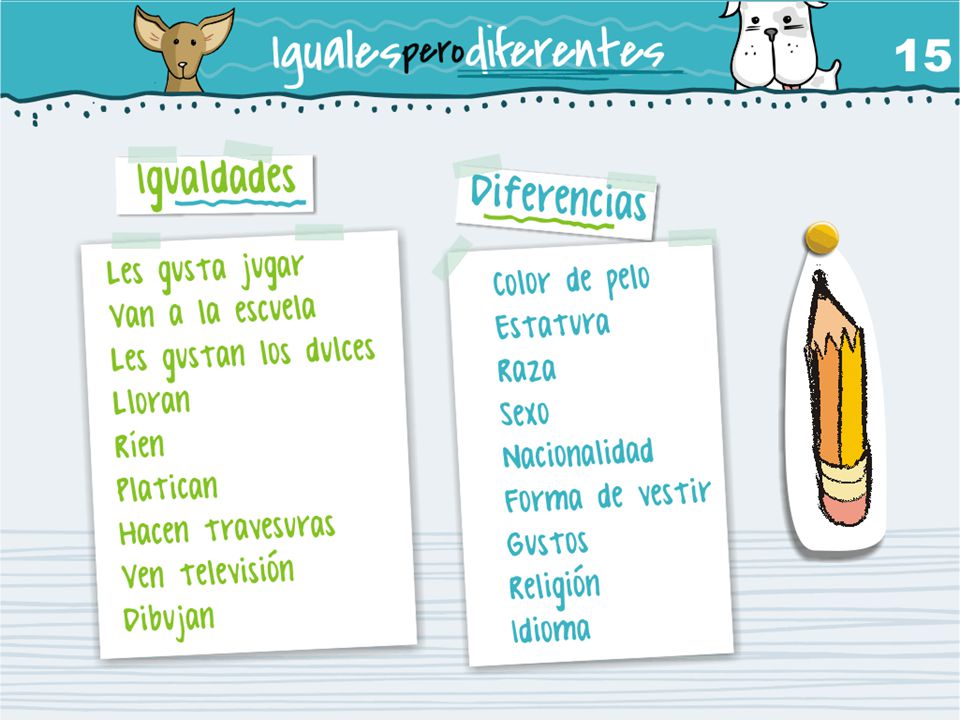 Iguales pero diferentes
15
Igualdades
Les gusta jugar
Van a la escuela
Les gustan los dulces
Lloran
Ríen
Platican
Hacen travesuras
Ven televisión
Dibujan
Diferencias
Color de pelo
Estatura
Raza
Sexo
Nacionalidad
Forma de vestir
Gustos
Religión
Idioma